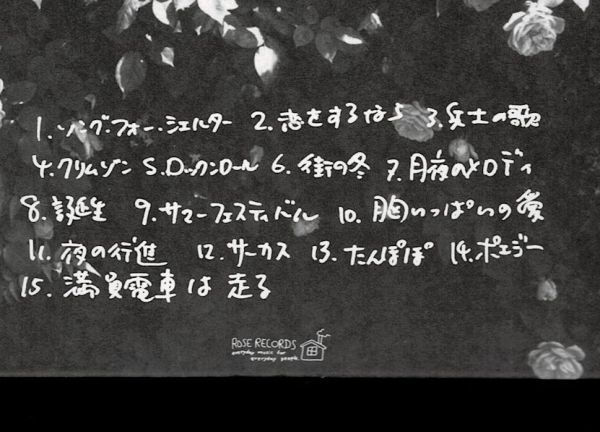 1. ソング・フォー・シェルター 2. 恋をするなら 3. 兵士の歌
4. クリムゾン 5. ロックンロール 6. 街の冬 7. 月夜のメロディ
8. 誕生 9. サマーフェスティバル 10. 胸いっぱいの愛
11. 夜の行進 12. サーカス 13. たんぽぽ 14. ポエジー
15. 満員電車は走る
ROSE RECORDS
everyday music for
everyday people